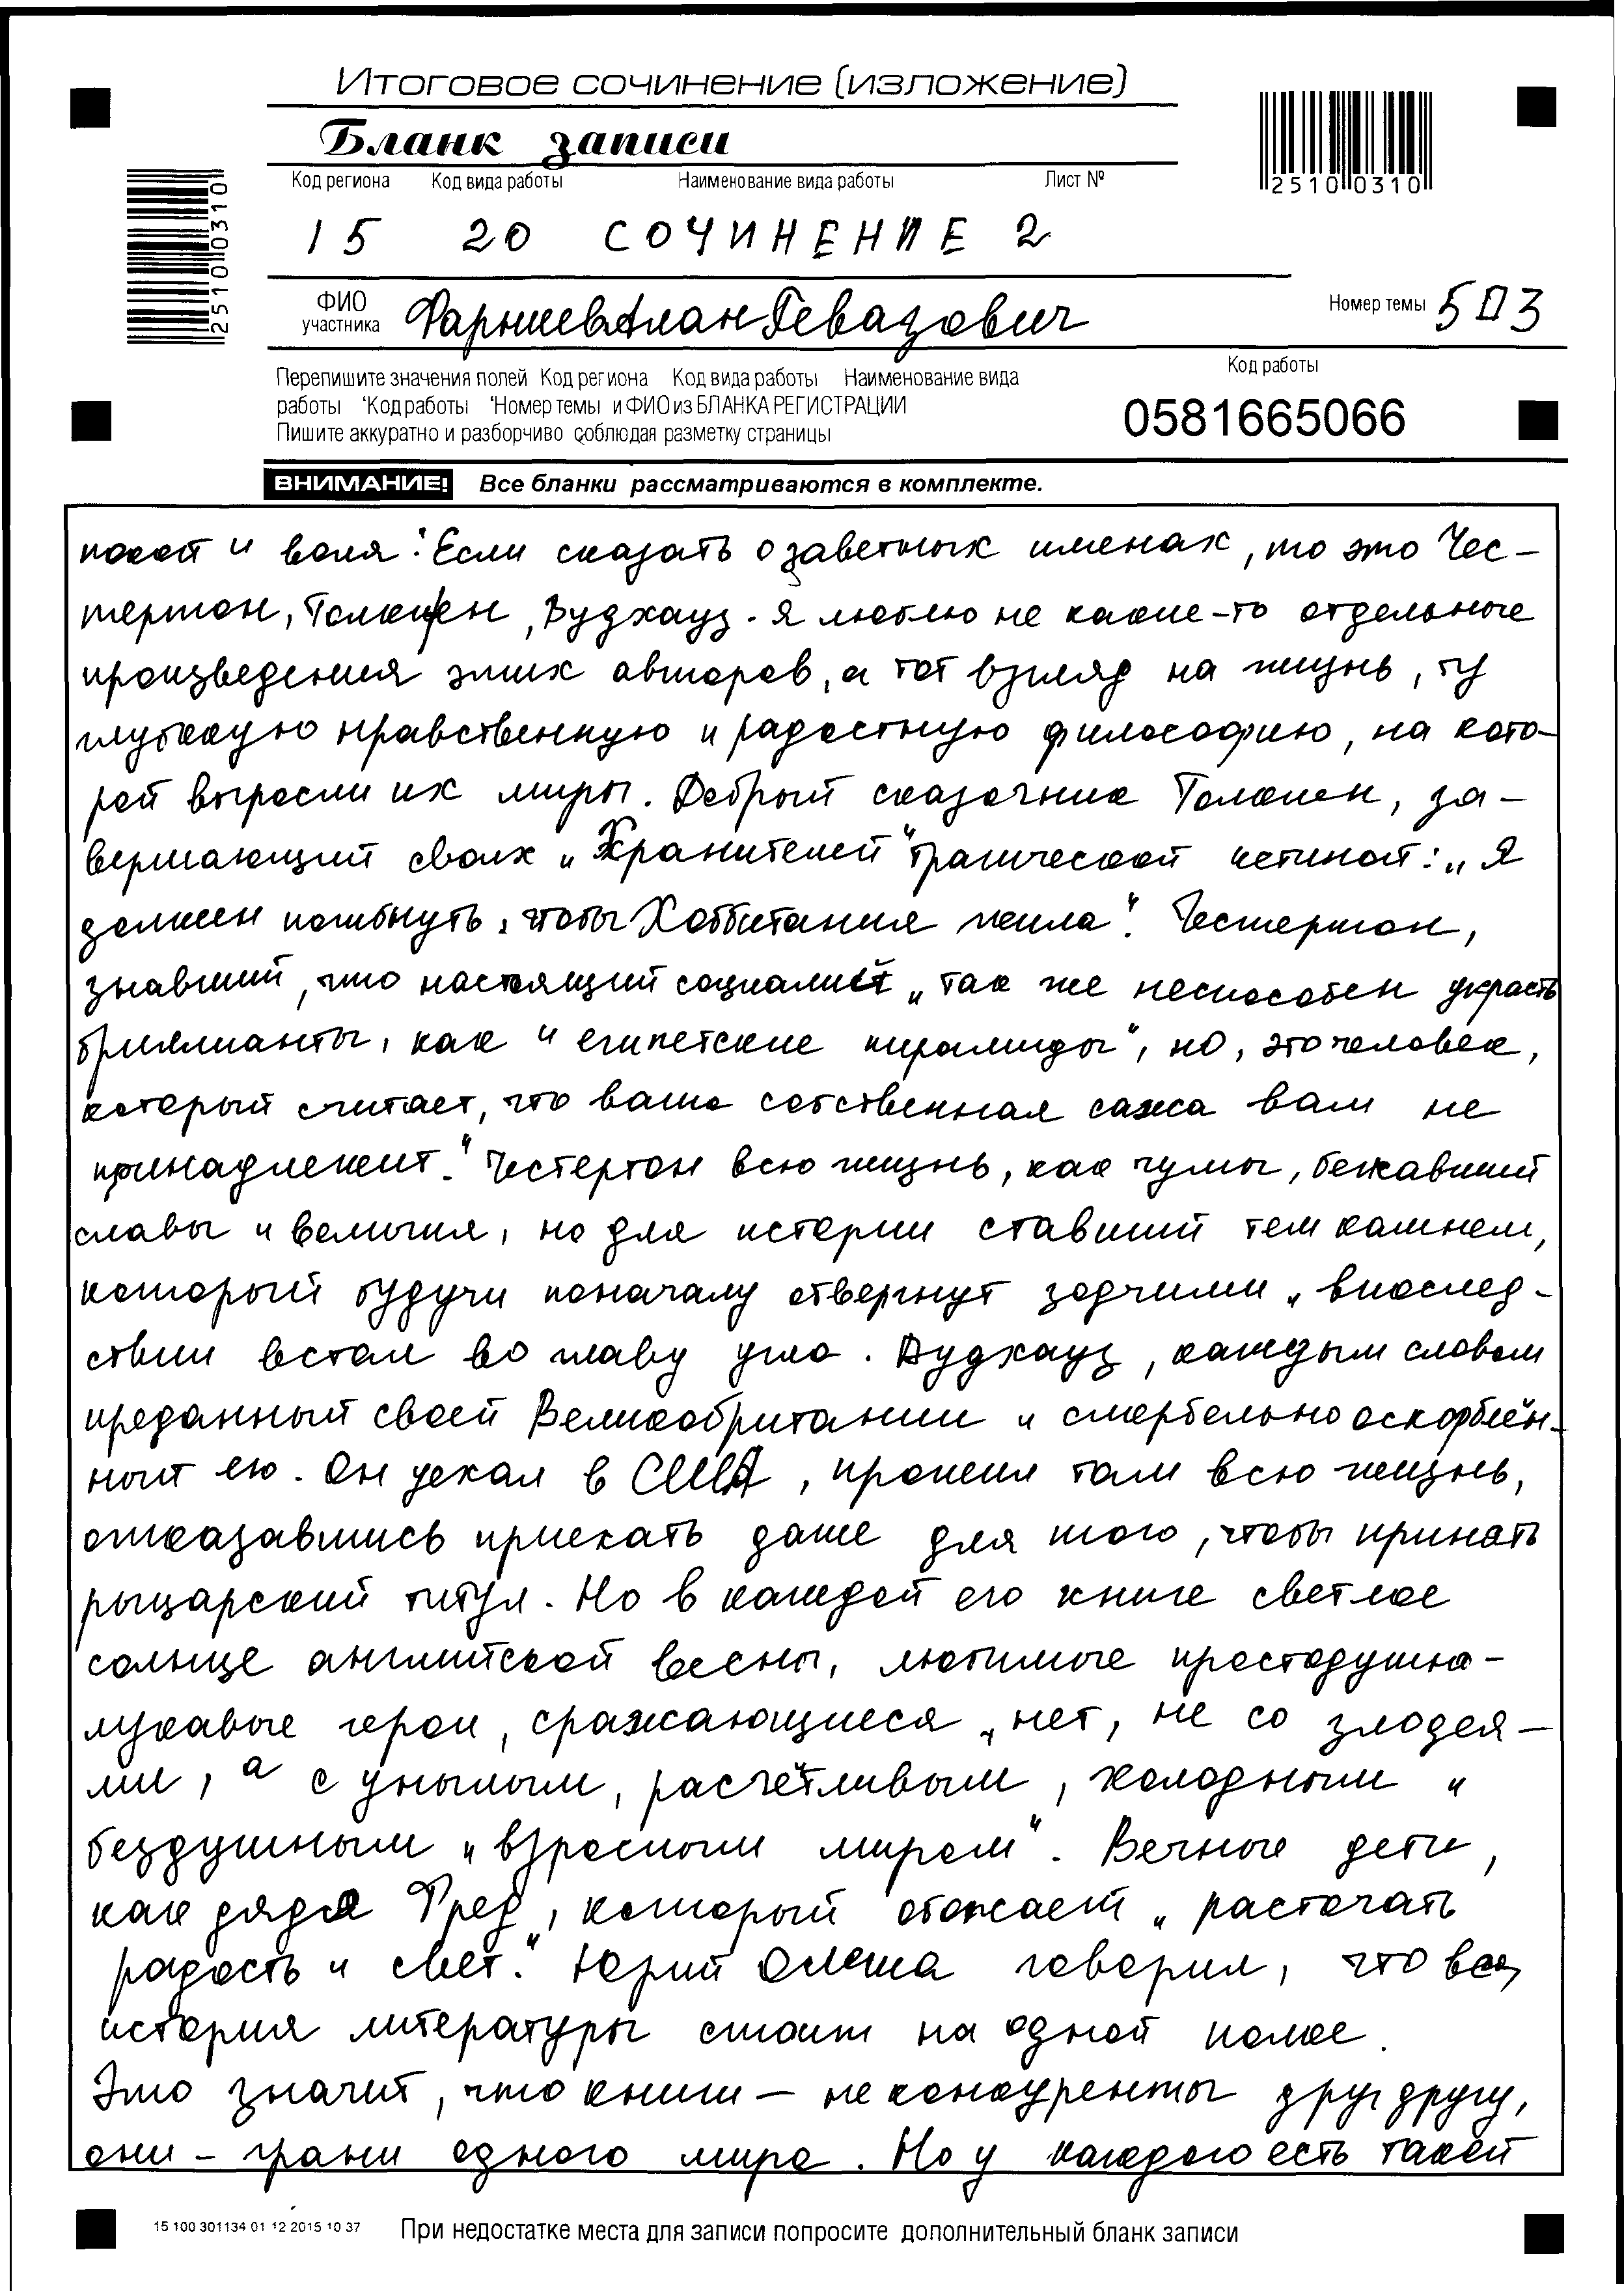 Итоговое сочинение (изложение)
Бланк записи
Код региона Код вида работы Наименование вида работы Лист №
251000310
251000310
15 20 СОЧИНЕНИЕ 2
ФИО участника Фарниев Алан Гевазович
Номер темы 503
Перепишите значения полей Код региона Код вида работы Наименование вида
работы Код работы Номер темы и ФИО из БЛАНКА РЕГИСТРАЦИИ
Пишите аккуратно и разборчиво соблюдая разметку страницы
Код работы
0581665066
ВНИМАНИЕ! Все бланки рассматриваются в комплекте.
покой и воля". Если сказать о заветных именах, то это Чес-
тертон, Толкиен, Вудхауз. Я люблю не какие-то отдельные
произведения этих авторов, а тот взгляд на жизнь, ту
глубокую нравственную и радостную философию, на кото-
рой выросли их миры. Добрый сказочник Толкиен, за-
вершающий своих „Хранителей" трагической истиной: „Я
должен погибнуть, чтобы Хоббитания жила". Честертон,
знавший, что настоящий социалист „так же неспособен украсть
бриллианты, как и египетские пирамиды", но, это человек,
который считает, что ваша собственная сажа вам не
принадлежит." Честертон всю жизнь, как чумы, бежавший
славы и величия, но для истории ставший тем камнем,
который будучи поначалу отвергнут зодчими, впослед-
ствии встал во главу угла. Вудхауз, каждым словом
преданный своей Великобритании и смертельно оскорблён-
ный ею. Он уехал в США, прожил там всю жизнь,
отказавшись приехать даже для того, чтобы принять
рыцарский титул. Но в каждой его книге светлое
солнце английской весны, любимые простодушно-
лукавые герои, сражающиеся, нет, не со злодея-
ми, а с унылым, расчётливым, холодным и
бездушным „взрослым миром". Вечные дети,
как дядя Фред, который обожает „расточать
радость и свет." Юрий Олеша говорил, что вся
история литературы стоит на одной полке.
Это значит, что книги – не конкуренты друг другу,
они – грани одного мира. Но у каждого есть такой
15 100 301134 01 12 2015 10 37
При недостатке места для записи попросите дополнительный бланк записи